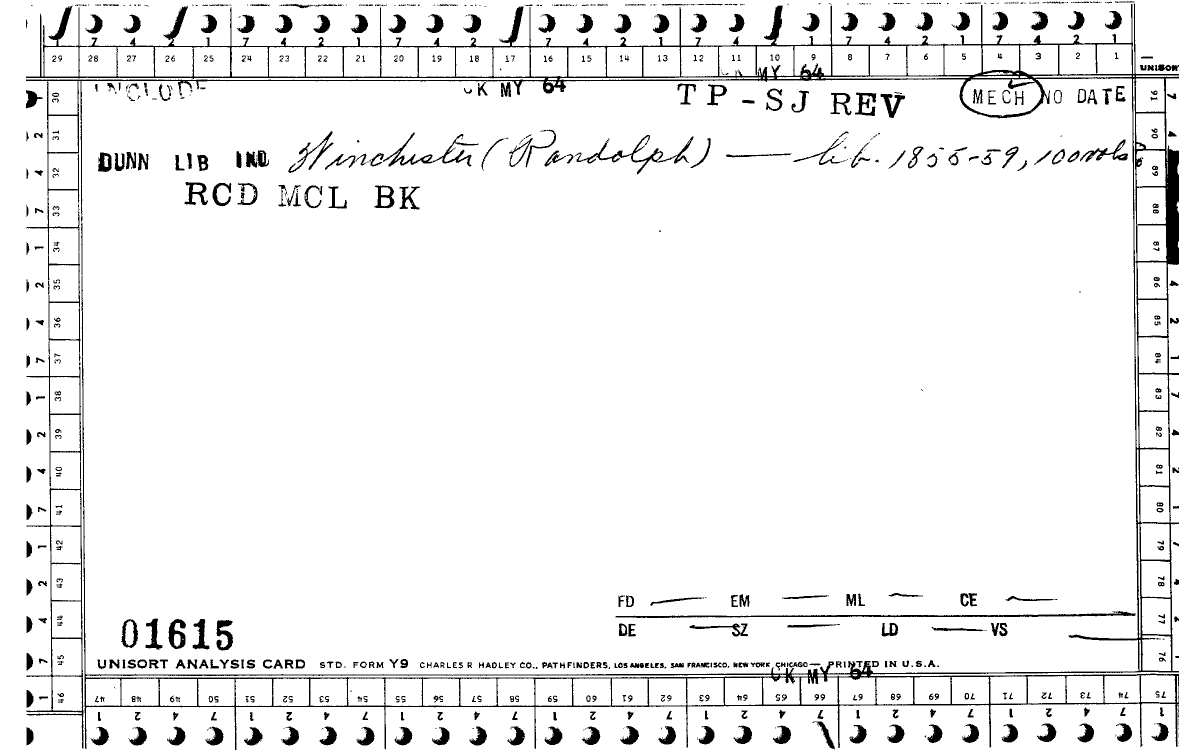 7 4 2 1 7 4 2 1 7 4 2 1 7 4 2 1 7 4 2 1 7 4 2 1
29 28 27 26 25 24 23 22 21 20 19 18 17 16 15 14 13 12 11 10 9 8 7 6 5 4 3 2 1
UNISORT
INCLUDE CK MY 64 CK MY 64
TP-SJ REV MECH NO DATE
DUNN LIB IND Winchester (Randolph) — lib. 1855-59, 100 vols
RCD MCL BK
30 31 32 33 34 35 36 37 38 39 40 41 42 43 44 45 46
91 90 89 88 87 86 85 84 83 82 81 80 79 78 77 76
FD — EM — ML — CE —
DE — SZ — LD — VS —
01615
UNISORT ANALYSIS CARD STD. FORM Y9 CHARLES R HADLEY CO., PATHFINDERS, LOS ANGELES, SAN FRANCISCO, NEW YORK CHICAGO — PRINTED IN U.S.A.
CK MY 64
47 48 49 50 51 52 53 54 55 56 57 58 59 60 61 62 63 64 65 66 67 68 69 70 71 72 73 74 75
1 2 4 7 1 2 4 7 1 2 4 7 1 2 4 7 1 2 4 7 1 2 4 7 1 2 4 7 1